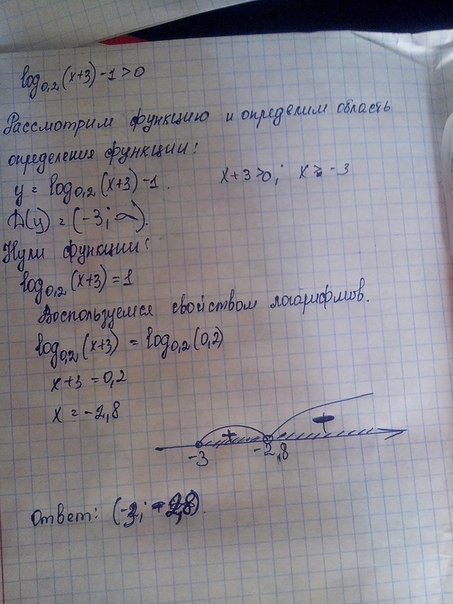 log0,2(x+3)-1>0
Рассмотрим функцию и определим область
определения функции:
y = log0,2(x+3)-1. x+3>0; x>-3
D(y) = (-3; ∞).
Нули функции:
log0,2(x+3)=1
Воспользуемся свойством логарифмов.
log0,2(x+3) = log0,2(0,2)
x+3 =0,2
x = -2,8
+ -
-3 -2,8
Ответ: (-3; -2,8).